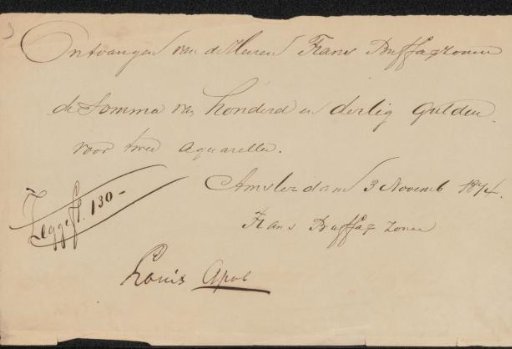 Ontvangen van de Heeren Frans Buffa & Zonen
de Somma van honderd en dertig Gulden
voor twee aquarellen.
Amsterdam 3 Novemb 1874.
Zegge f 130-
Frans Buffa & Zonen
Louis Apol